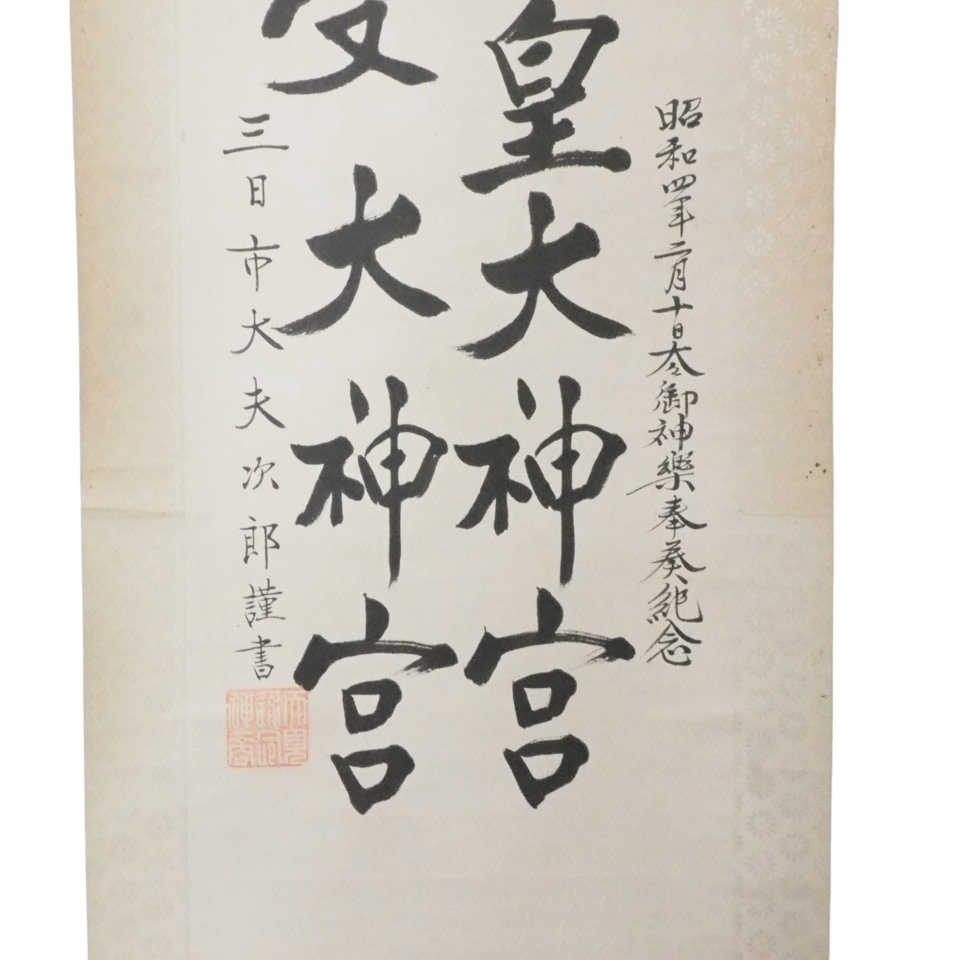 昭和四年二月十日太々御神樂奉奏紀念
皇大神宮
受大神宮
三日市大夫次郎謹書